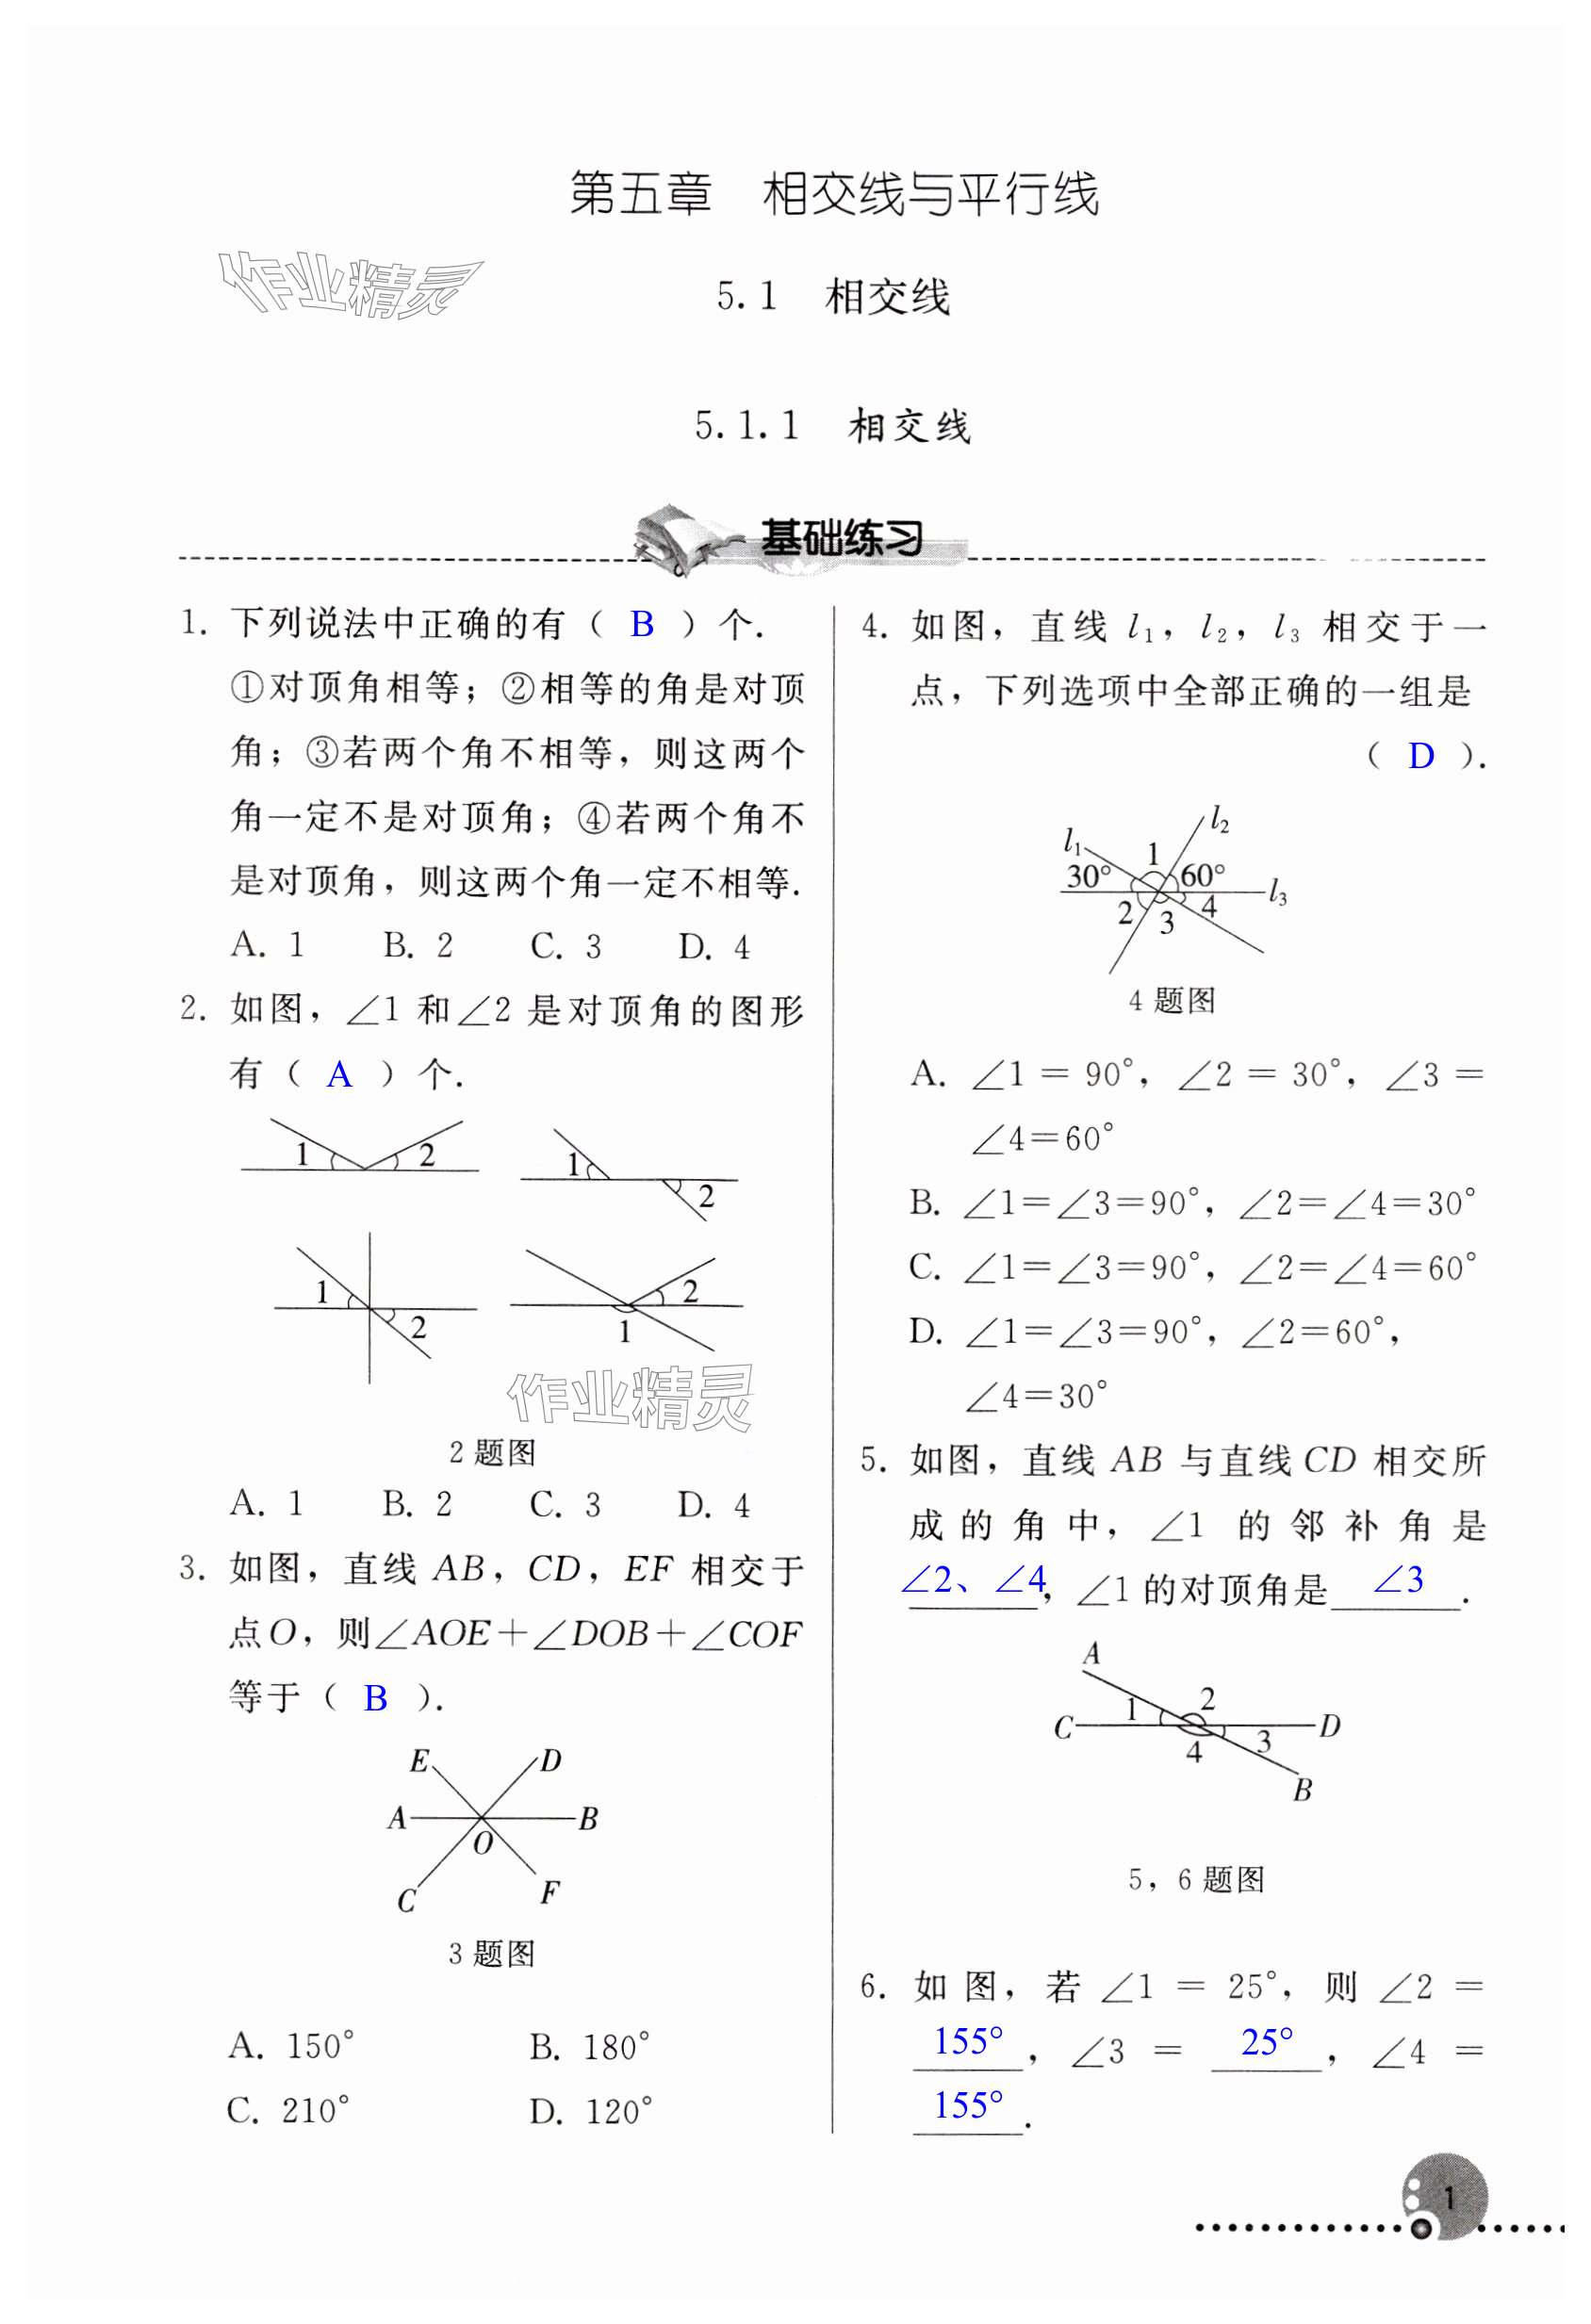 第五章 相交线与平行线
作业精灵
5.1 相交线
5.1.1 相交线
基础练习
1. 下列说法中正确的有（ B ）个.
①对顶角相等；②相等的角是对顶
角；③若两个角不相等，则这两个
角一定不是对顶角；④若两个角不
是对顶角，则这两个角一定不相等.
A. 1 B. 2 C. 3 D. 4
2. 如图，∠1 和∠2 是对顶角的图形
有（ A ）个.
1 2
1 2
1 2
2 1
作业精灵
2 题图
A. 1 B. 2 C. 3 D. 4
3. 如图，直线 AB，CD，EF 相交于
点O，则∠AOE＋∠DOB＋∠COF
等于（ B ）.
E D
A B
O
C F
3 题图
A. 150° B. 180°
C. 210° D. 120°
4. 如图，直线 l₁，l₂，l₃ 相交于一
点，下列选项中全部正确的一组是
（ D ）.
l₂
l₁ 1
30° 60° l₃
2 3 4
4 题图
A. ∠1 = 90°，∠2 = 30°，∠3 =
∠4=60°
B. ∠1=∠3=90°，∠2=∠4=30°
C. ∠1=∠3=90°，∠2=∠4=60°
D. ∠1=∠3=90°，∠2=60°，
∠4=30°
5. 如图，直线 AB 与直线CD 相交所
成的角中，∠1 的邻补角是
∠2、∠4，∠1 的对顶角是 ∠3 .
A
1 2
C D
4 3
B
5，6 题图
6. 如图，若∠1 = 25°，则∠2 =
155°，∠3 = 25°，∠4 =
155°.
1